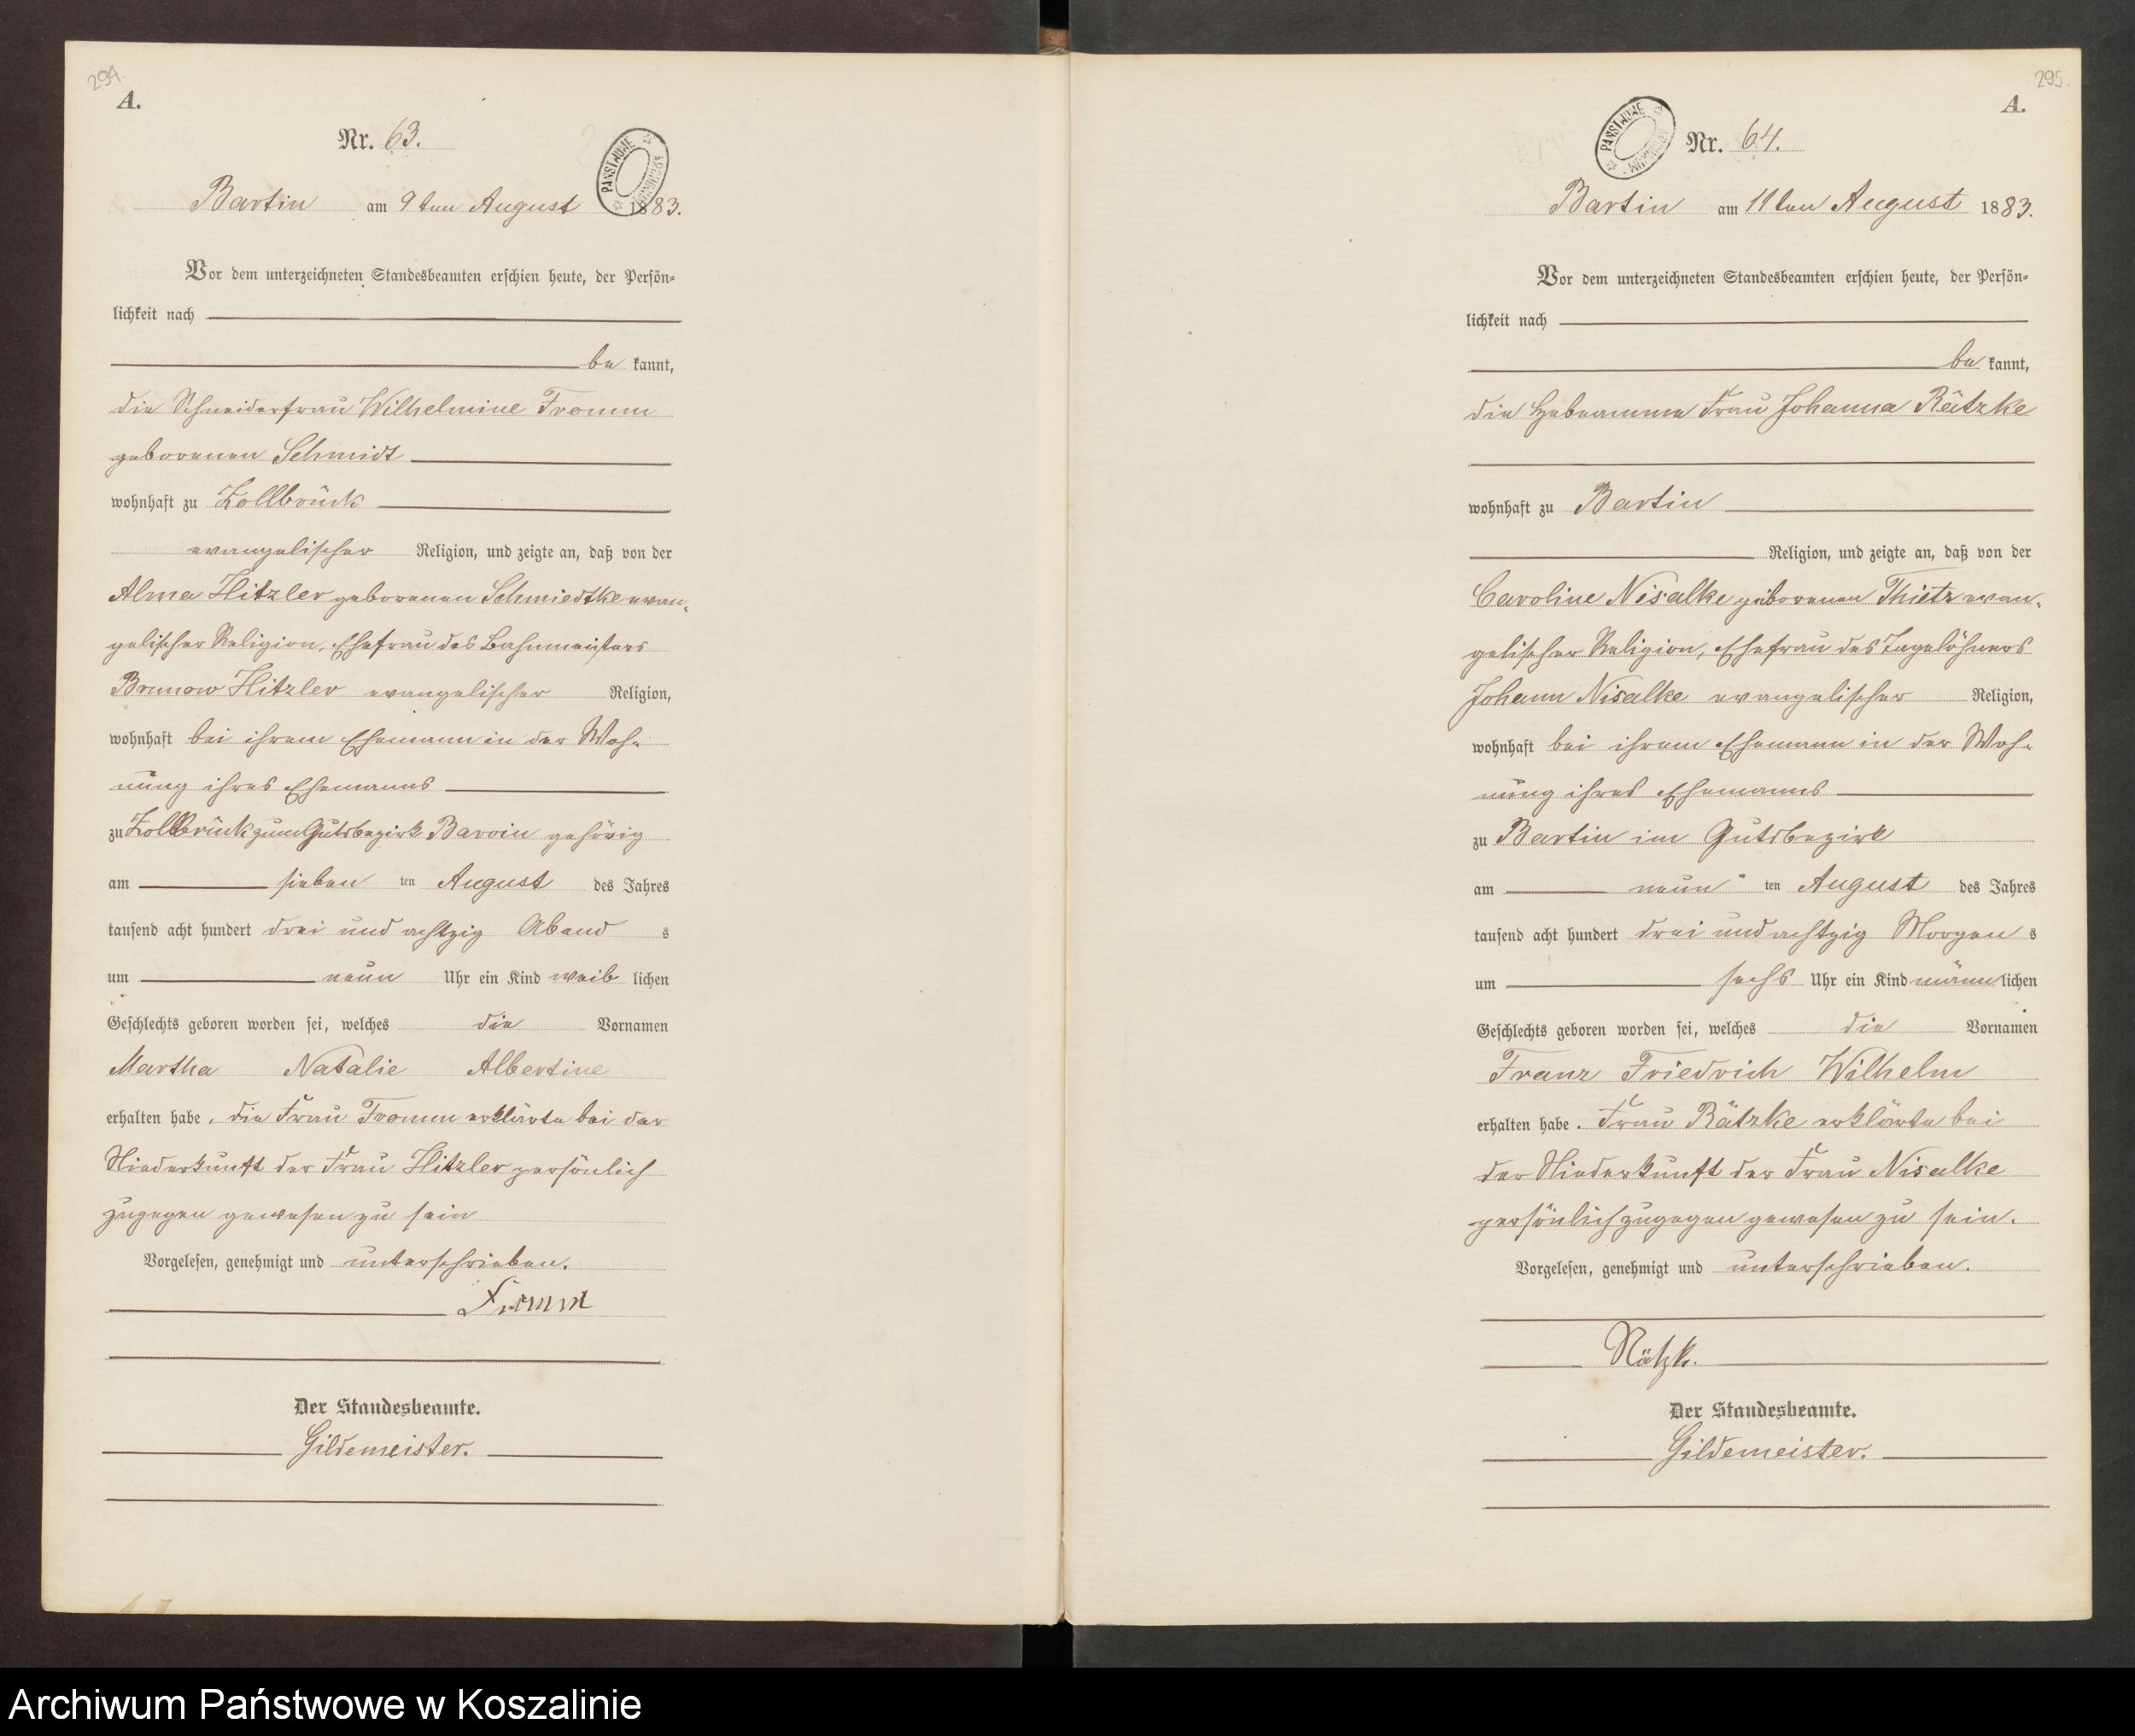 294.
A.
Nr. 63.
PAŃSTWOWE ARCHIWUM
Bartin am 9ten August 1883.
Vor dem unterzeichneten Standesbeamten erschien heute, der Persön-
lichkeit nach
be kannt,
die Schneiderfrau Wilhelmine Fromm
geborenen Schmidt
wohnhaft zu Zollbrück
evangelischer Religion, und zeigte an, daß von der
Alma Hitzler geborenen Schmiedtke evan-
gelischer Religion, Ehefrau des Bahnmeisters
Brunow Hitzler evangelischer Religion,
wohnhaft bei ihrem Ehemann in der Woh-
nung ihres Ehemanns
zu Zollbrück zum Gutsbezirk Barvin gehörig
am sieben ten August des Jahres
tausend acht hundert drei und achtzig Abend s
um neun Uhr ein Kind weib lichen
Geschlechts geboren worden sei, welches die Vornamen
Martha Natalie Albertine
erhalten habe. die Frau Fromm erklärte bei der
Niederkunft der Frau Hitzler persönlich
zugegen gewesen zu sein
Vorgelesen, genehmigt und unterschrieben.
Fromm
Der Standesbeamte.
Gildemeister.
295.
A.
PAŃSTWOWE ARCHIWUM
Nr. 64.
Bartin am 11ten August 1883.
Vor dem unterzeichneten Standesbeamten erschien heute, der Persön-
lichkeit nach
be kannt,
die Hebeamme Frau Johanna Rätzke
wohnhaft zu Bartin
Religion, und zeigte an, daß von der
Caroline Nisalke geborenen Thietz evan-
gelischer Religion, Ehefrau des Tagelöhners
Johann Nisalke evangelischer Religion,
wohnhaft bei ihrem Ehemann in der Woh-
nung ihres Ehemanns
zu Bartin im Gutsbezirk
am neun ten August des Jahres
tausend acht hundert drei und achtzig Morgen s
um sechs Uhr ein Kind männ lichen
Geschlechts geboren worden sei, welches die Vornamen
Franz Friedrich Wilhelm
erhalten habe. Frau Rätzke erklärte bei
der Niederkunft der Frau Nisalke
persönlich zugegen gewesen zu sein.
Vorgelesen, genehmigt und unterschrieben.
Rätzk.
Der Standesbeamte.
Gildemeister.
Archiwum Państwowe w Koszalinie